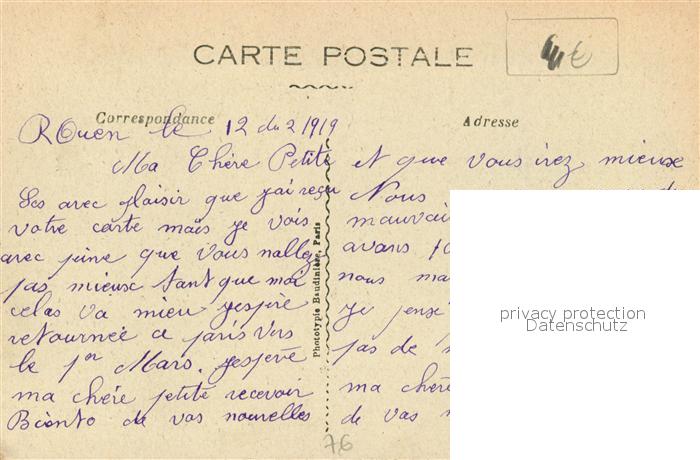 4 €
CARTE POSTALE
Correspondance
Adresse
ROuen le 12 du 2 1919
Ma Chère Petite
Ses avec plaisir que j'ai reçu
votre carte mais je vois
avec peine que vous nallez
pas mieuse tant que moi
celas va mieu jespère
retournée a paris vers
le 1er Mars. jespère
ma chére petite recevoir
Biento de vos nouvelles
Phototypie Baudinière, Paris
et que vous irez mieuse
Nous
mauvai
avans
nous ma
je pense
pas de
ma chére
de vas
privacy protection
Datenschutz
76